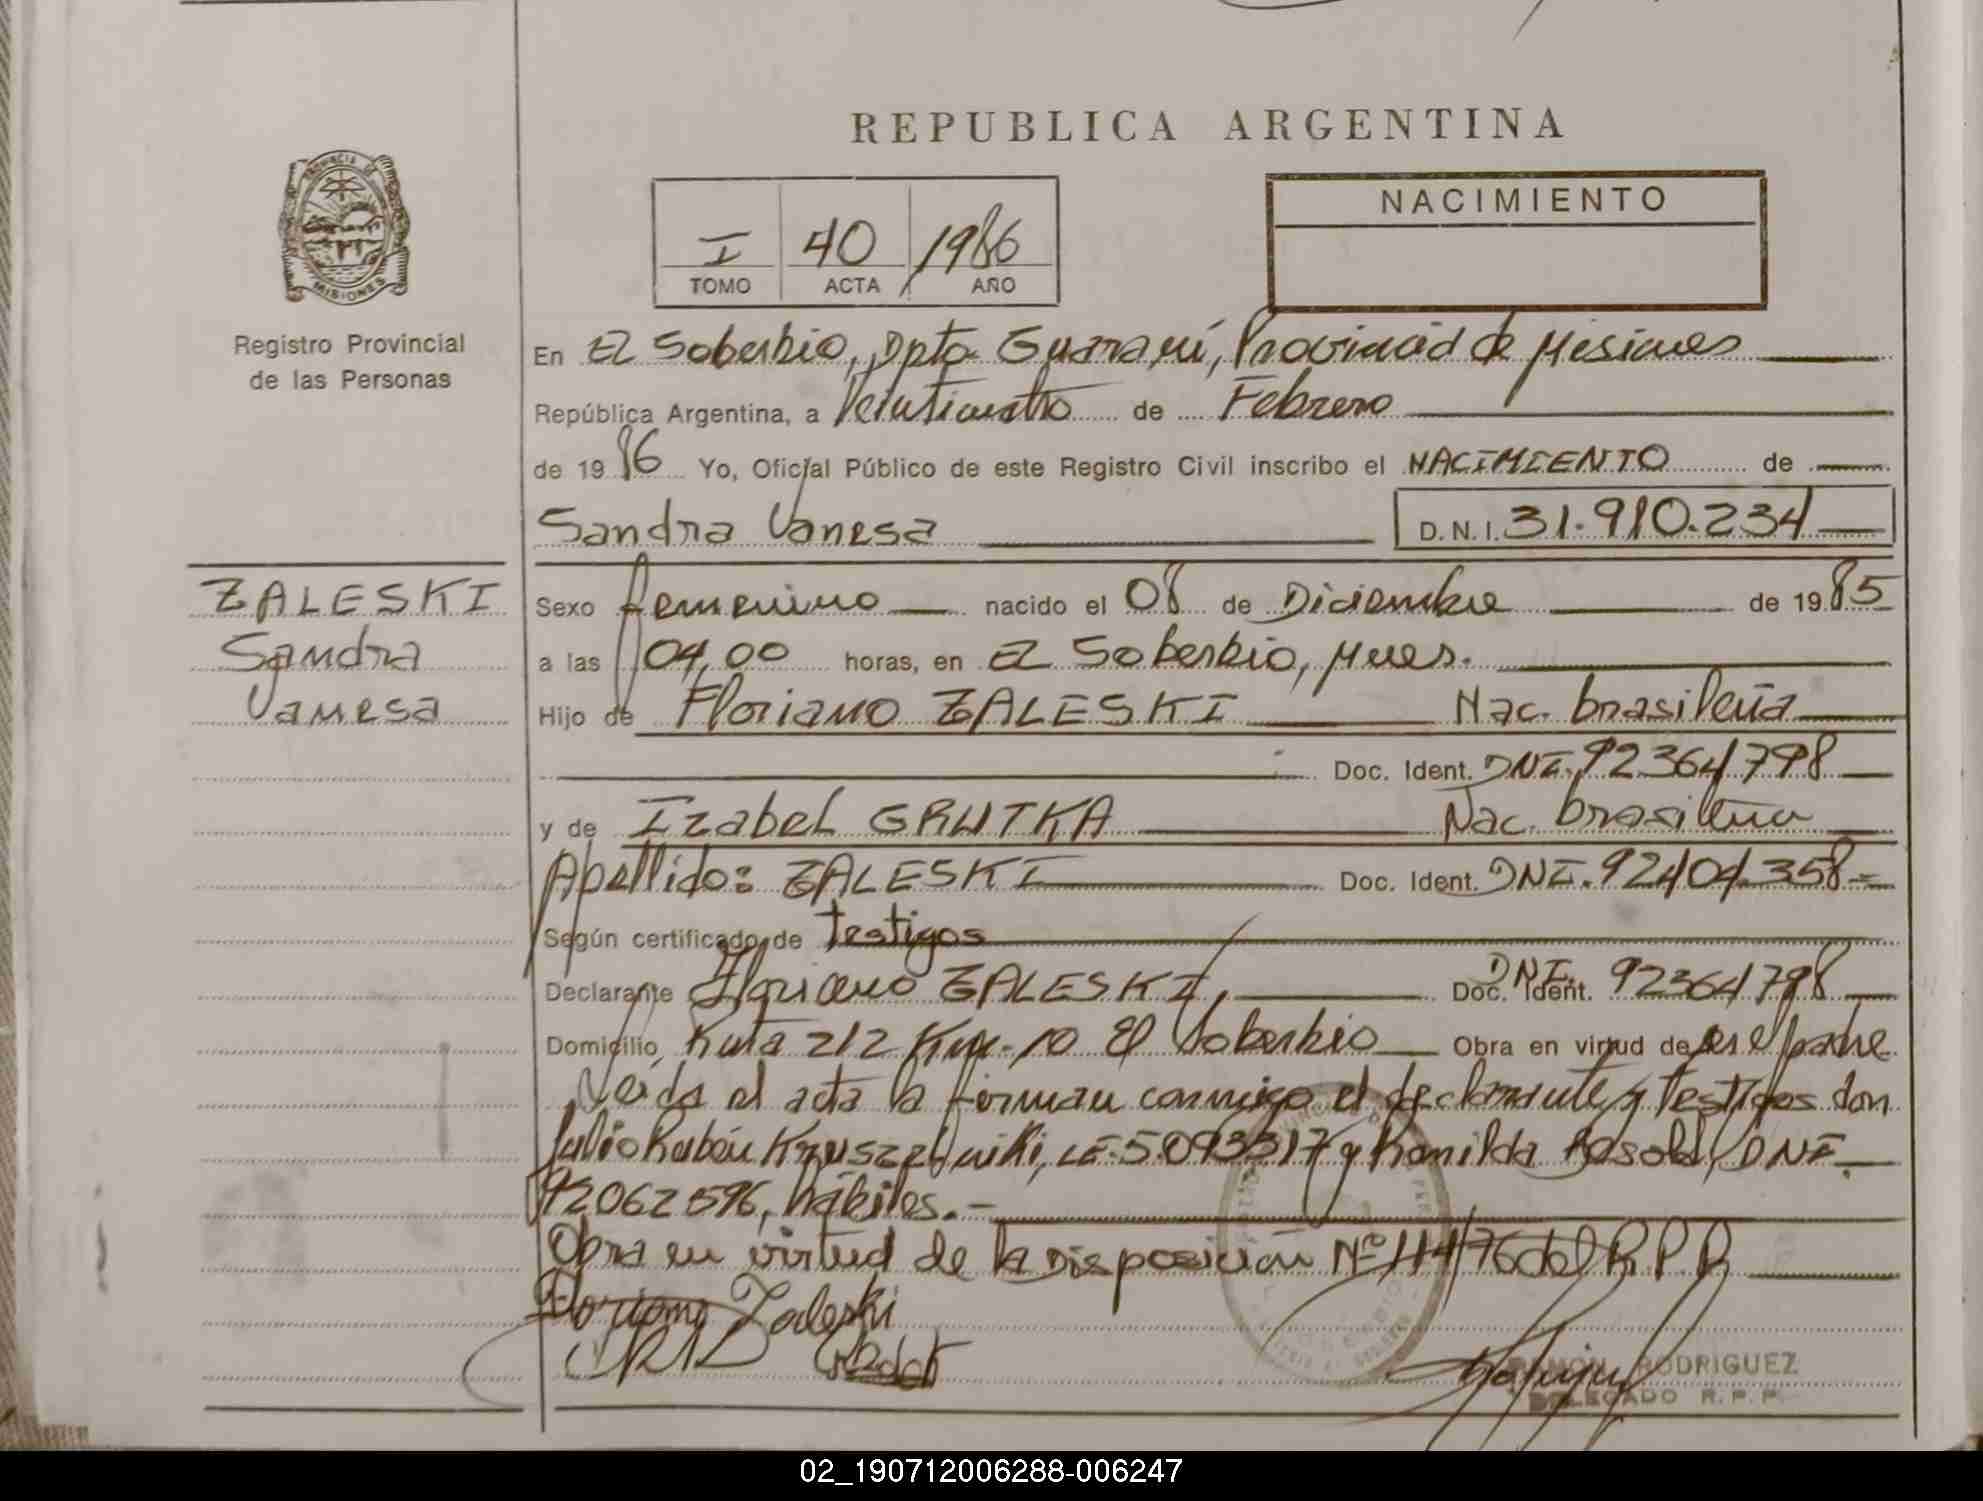 REPUBLICA ARGENTINA
PROVINCIA DE
MISIONES
Registro Provincial
de las Personas
I 40 1986
TOMO ACTA AÑO
NACIMIENTO
En El Soberbio, Dpto Guaraní, Provincia de Misiones
República Argentina, a Veinticuatro de Febrero
de 1986 Yo, Oficial Público de este Registro Civil inscribo el NACIMIENTO de
Sandra Vanesa D.N.I. 31.910.234
ZALESKI
Sandra
Vanesa
Sexo femenino nacido el 08 de Diciembre de 1985
a las 04,00 horas, en El Soberbio, Mnes.
Hijo de Floriano ZALESKI Nac. brasileña
Doc. Ident. DNI. 92364798
y de Izabel GRUTKA Nac. brasileña
Apellido: ZALESKI Doc. Ident. DNI. 92404.358
Según certificado de testigos
Declarante Floriano ZALESKI, Doc. Ident. DNI. 92364798
Domicilio Ruta 212 Km-10 El Soberbio Obra en virtud de ser el padre
Leida el acta la firman conmigo el declarante y testigos don
Julio Rubén LE. 5.093317 y DNI.
92062596, hábiles.-
Obra en virtud de la Disposición Nº 114/76 del R.P.P.
Floriano Zaleski
RAMON RODRIGUEZ
DELEGADO R.P.P.
02_190712006288-006247